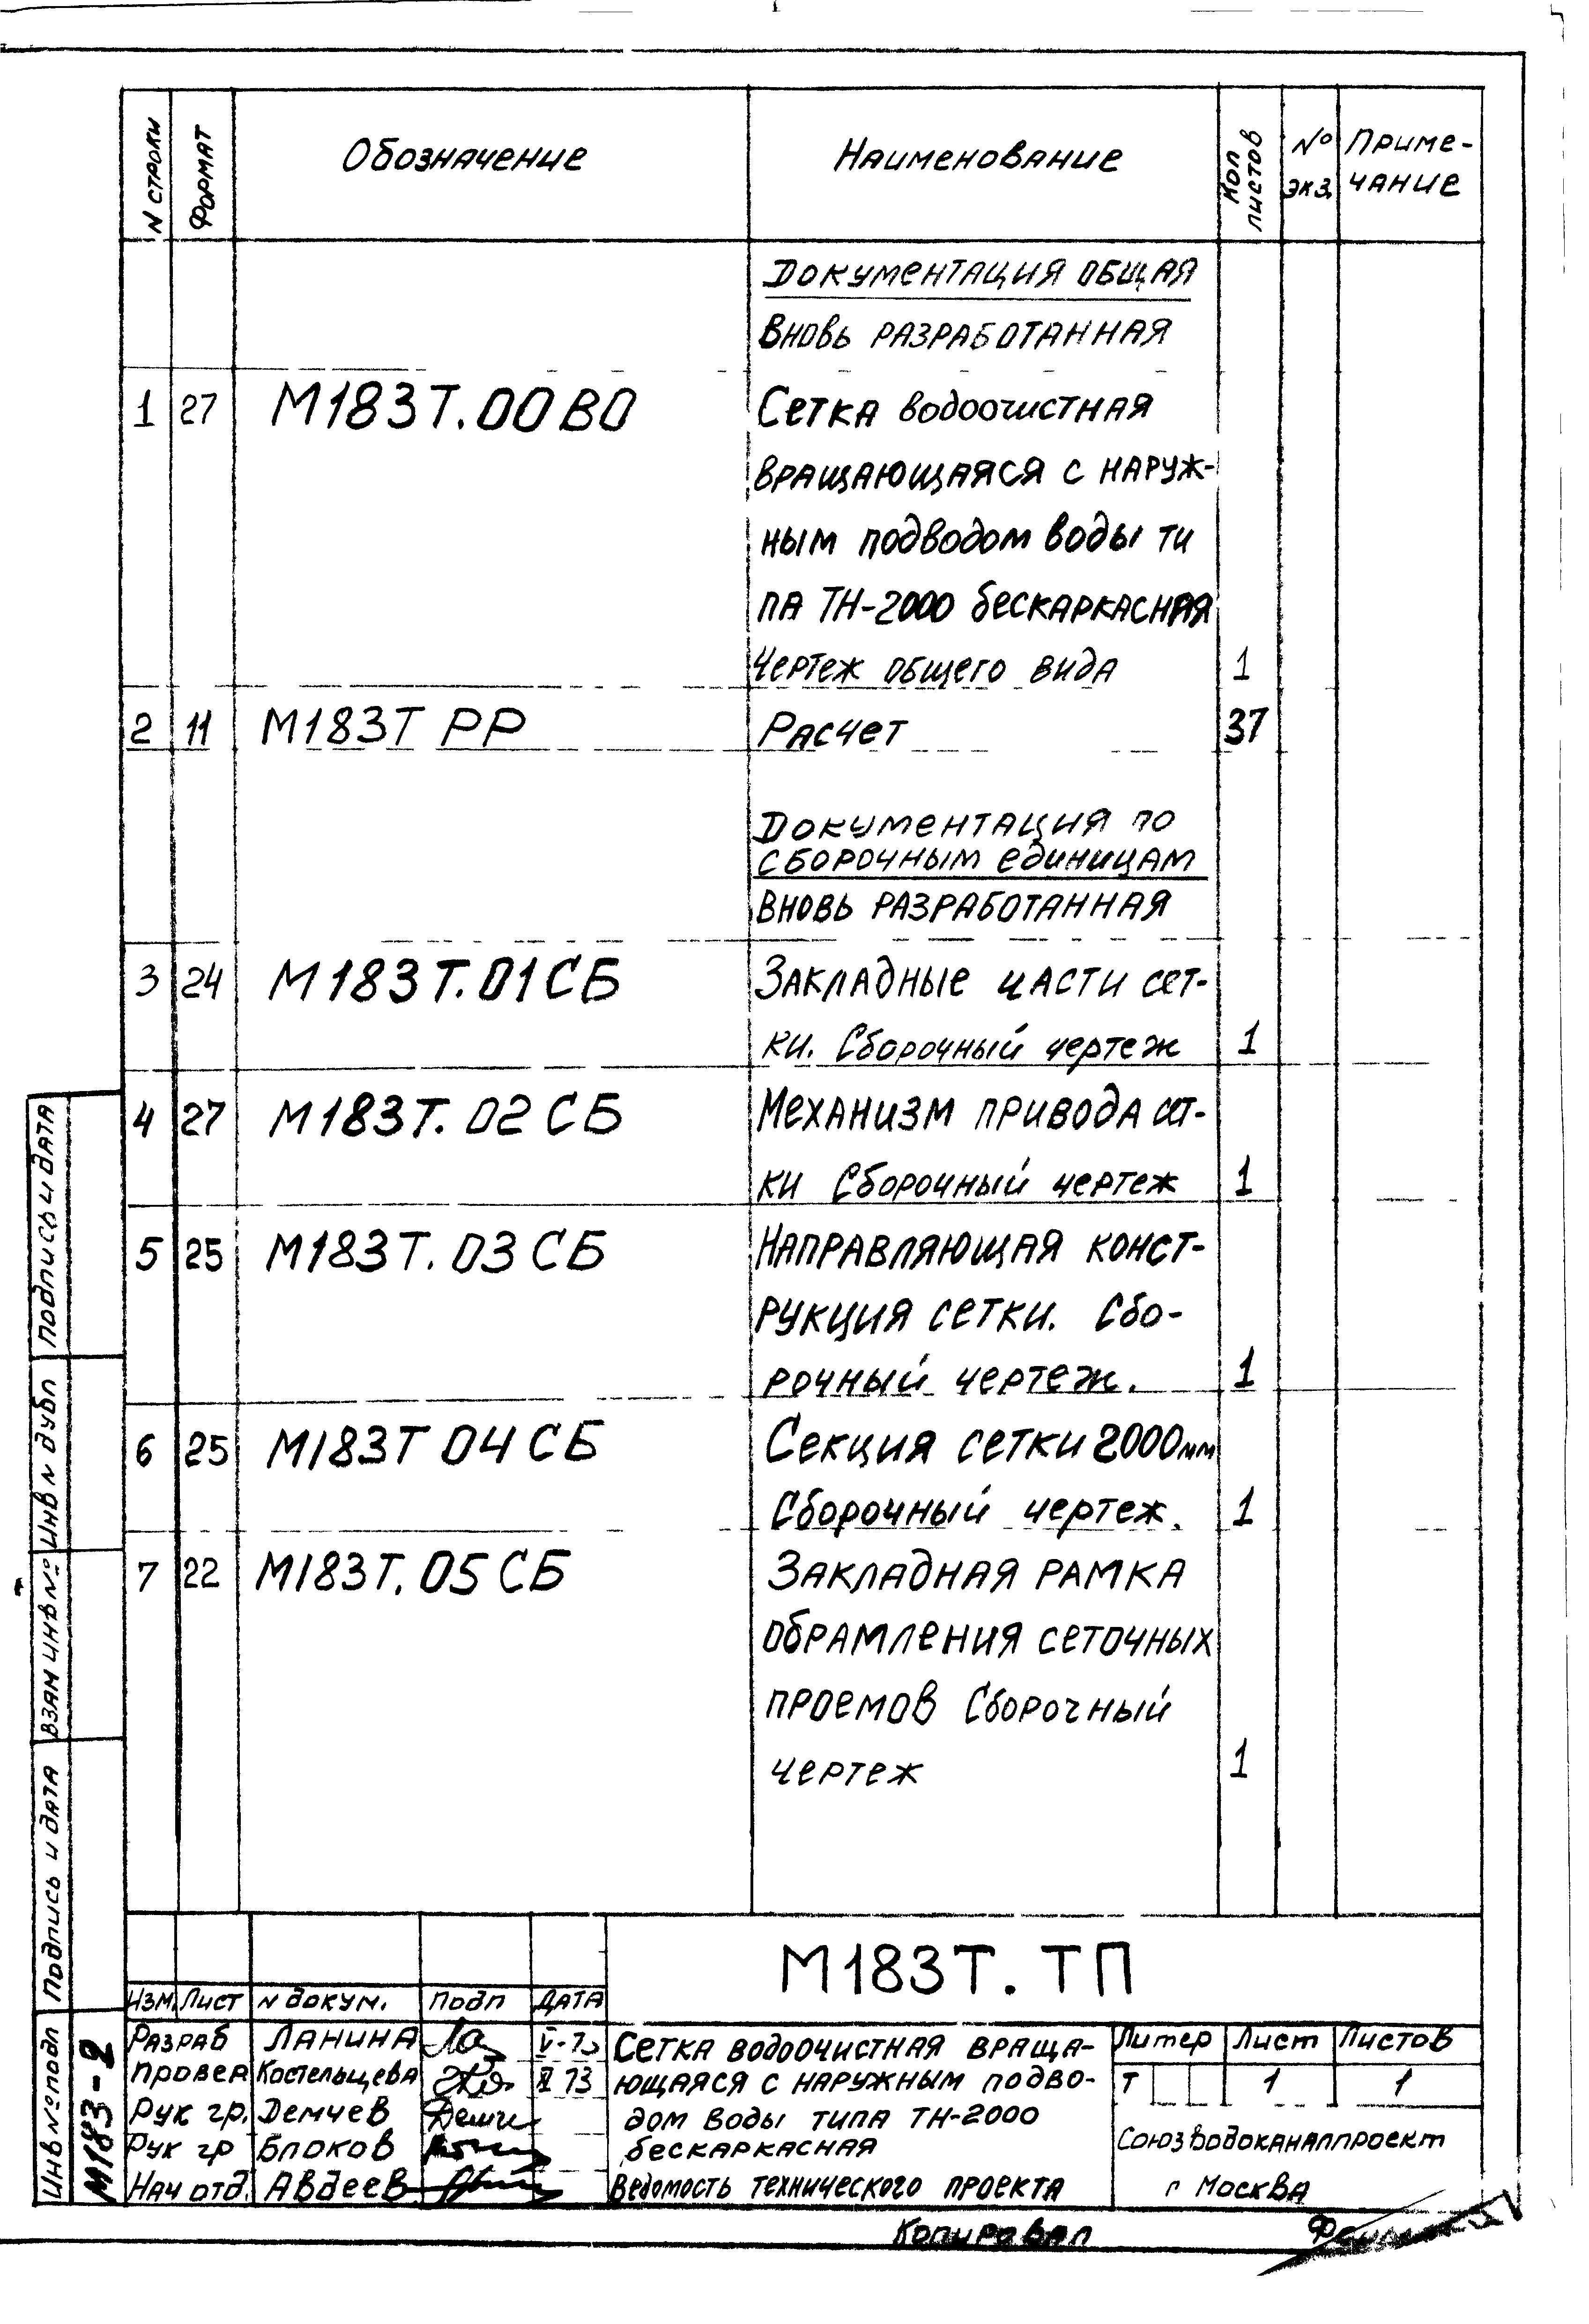 N строки
Формат
Обозначение
Наименование
Кол листов
№ экз.
Приме-
чание
Документация общая
Вновь разработанная
1 27 М183Т.00ВО Сетка водоочистная
вращающаяся с наруж-
ным подводом воды ти
па ТН-2000 бескаркасная
Чертеж общего вида 1
2 11 М183Т РР Расчет 37
Документация по
сборочным единицам
Вновь разработанная
3 24 М183Т.01СБ Закладные части сет-
ки. Сборочный чертеж 1
4 27 М183Т.02СБ Механизм привода сет-
ки Сборочный чертеж 1
5 25 М183Т.03СБ Направляющая конст-
рукция сетки. Сбо-
рочный чертеж. 1
6 25 М183Т 04СБ Секция сетки 2000мм
Сборочный чертеж. 1
7 22 М183Т.05СБ Закладная рамка
обрамления сеточных
проемов Сборочный
чертеж 1
Подпись и дата
Инв N дубл
Взам инв №
Подпись и дата
Инв № подл
М183-2
М183Т.ТП
Изм. Лист N докум. Подп Дата
Разраб Ланина V-73
Провер Костельцева 73
Рук гр. Демчев
Рук гр Блоков
Нач отд. Авдеев
Сетка водоочистная враща-
ющаяся с наружным подво-
дом воды типа ТН-2000
бескаркасная
Ведомость технического проекта
Литер Лист Листов
Т 1 1
Союзводоканалпроект
г Москва
Копировал